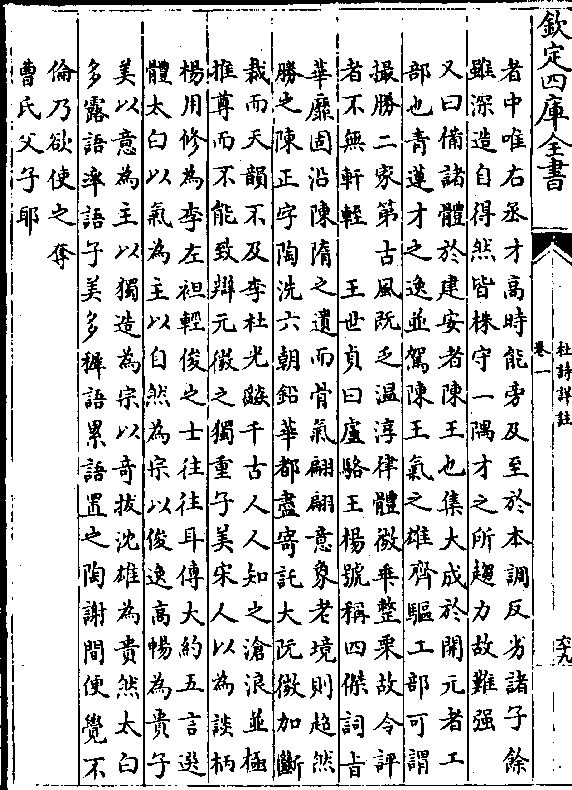 欽定四庫全書
杜詩詳註
卷一
六十九
者中唯右丞才高時能旁及至於本調反劣諸子餘
雖深造自得然皆株守一隅才之所趨力故難强
又曰備諸體於建安者陳王也集大成於開元者工
部也青蓮才之逸並駕陳王氣之雄齊驅工部可謂
撮勝二家第古風既乏温淳律體微乖整栗故令評
者不無軒輊　王世貞曰盧駱王楊號稱四傑詞旨
華靡固沿陳隋之遺而骨氣翩翩意象老境則超然
勝之陳正字陶洗六朝鉛華都盡寄託大阮微加斷
裁而天韻不及李杜光燄千古人人知之滄浪並極
推尊而不能致辯元微之獨重子美宋人以為談柄
楊用修為李左袒輕俊之士往往耳傳大約五言選
體太白以氣為主以自然為宗以俊逸高暢為貴子
美以意為主以獨造為宗以奇拔沈雄為貴然太白
多露語率語子美多穉語累語置之陶謝間便覺不
倫乃欲使之奪
曹氏父子耶